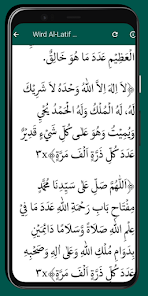 Wird Al-Latif ...
الْعَظِيْمِ عَدَدَ مَا هُوَ خَالِقٌ.
﴿لَا اِلٰهَ اِلَّا اللّٰهُ وَحْدَهُ لَا شَرِيْكَ
لَهُ، لَهُ الْمُلْكُ وَلَهُ الْحَمْدُ يُحْيِي
وَيُمِيْتُ وَهُوَ عَلَى كُلِّ شَيْءٍ قَدِيْرٌ
عَدَدَ كُلِّ ذَرَّةٍ اَلْفَ مَرَّةٍ﴾ ٣x
﴿اَللّٰهُمَّ صَلِّ عَلَى سَيِّدِنَا مُحَمَّدٍ
مِفْتَاحِ بَابِ رَحْمَةِ اللّٰهِ عَدَدَ مَا فِيْ
عِلْمِ اللّٰهِ صَلَاةً وَسَلَامًا دَائِمَيْنِ
بِدَوَامِ مُلْكِ اللّٰهِ وَعَلَى اٰلِهِ وَصَحْبِهِ
عَدَدَ كُلِّ ذَرَّةٍ اَلْفَ مَرَّةٍ﴾ ٣x